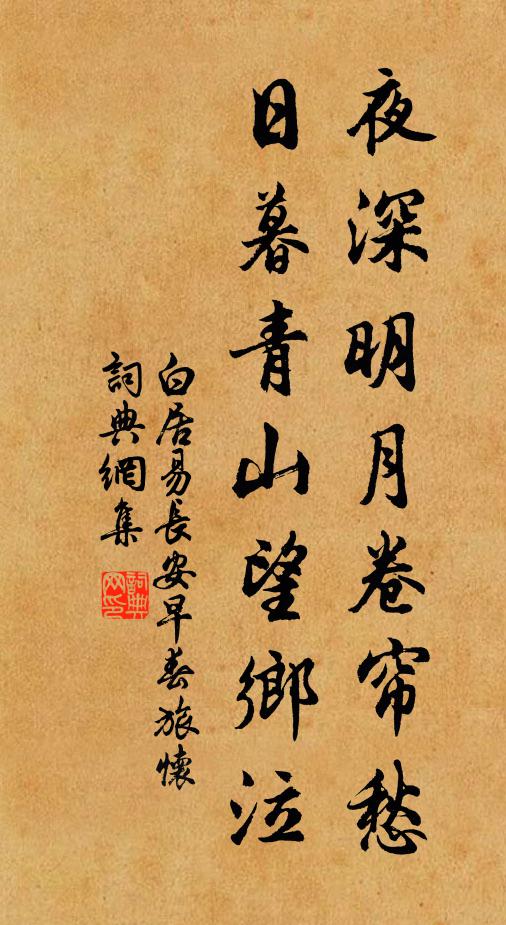 夜深明月卷帘愁
日暮青山望鄉泣
白居易長安早春旅懷
詞典網集
詞典网印